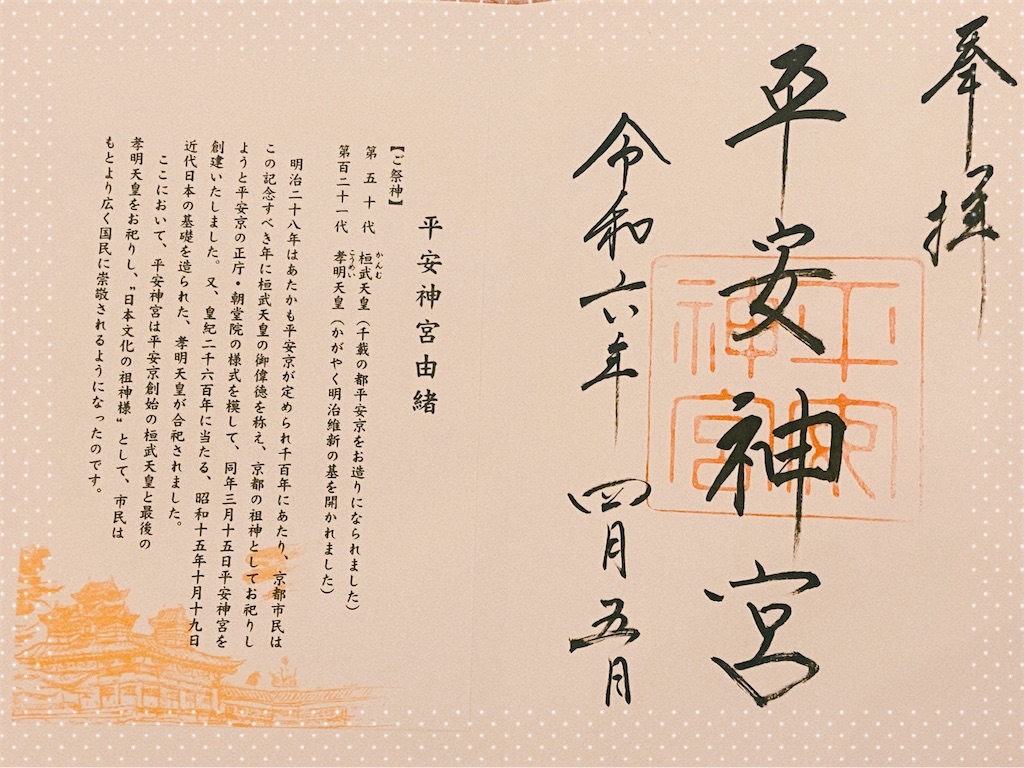 奉拝
平安神宮
平安神宮
令和六年 四月五日
平安神宮由緒
【ご祭神】
第五十代 桓武天皇（千載の都平安京をお造りになられました）
かんむ
第百二十一代 孝明天皇（かがやく明治維新の基を開かれました）
こうめい
明治二十八年はあたかも平安京が定められ千百年にあたり、京都市民は
この記念すべき年に桓武天皇の御偉徳を称え、京都の祖神としてお祀りし
ようと平安京の正庁・朝堂院の様式を模して、同年三月十五日平安神宮を
創建いたしました。又、皇紀二千六百年に当たる、昭和十五年十月十九日
近代日本の基礎を造られた、孝明天皇が合祀されました。
ここにおいて、平安神宮は平安京創始の桓武天皇と最後の
孝明天皇をお祀りし、"日本文化の祖神様"として、市民は
もとより広く国民に崇敬されるようになったのです。